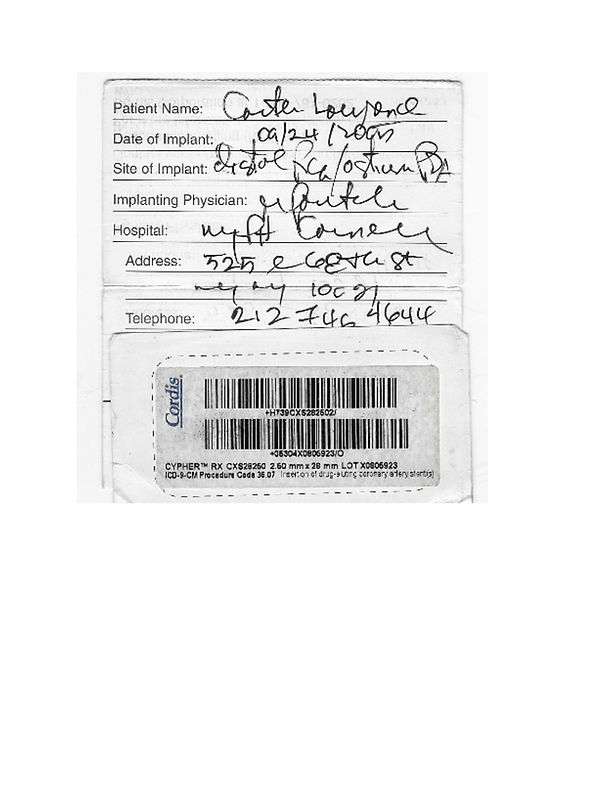 Patient Name: Carter
Date of Implant: 09/24/2005
Site of Implant: distal RCA/ostium PDA
Implanting Physician:
Hospital: nyph Cornell
Address: 525 e 68th st
ny ny 10021
Telephone: 212 746 4644
Cordis.
+H739CXS282502/
+05304X0805923/O
CYPHER™ RX CXS28250 2.50 mm x 28 mm LOT X0805923
ICD-9-CM Procedure Code 36.07 Insertion of drug-eluting coronary artery stent(s)